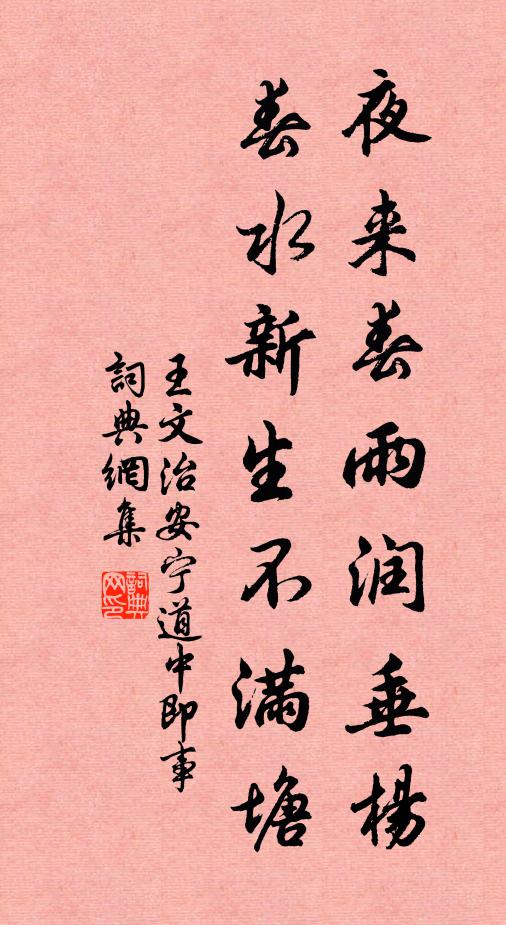 夜来春雨润垂楊
春水新生不满塘
王文治安宁道中即事
詞典網集
詞典网印